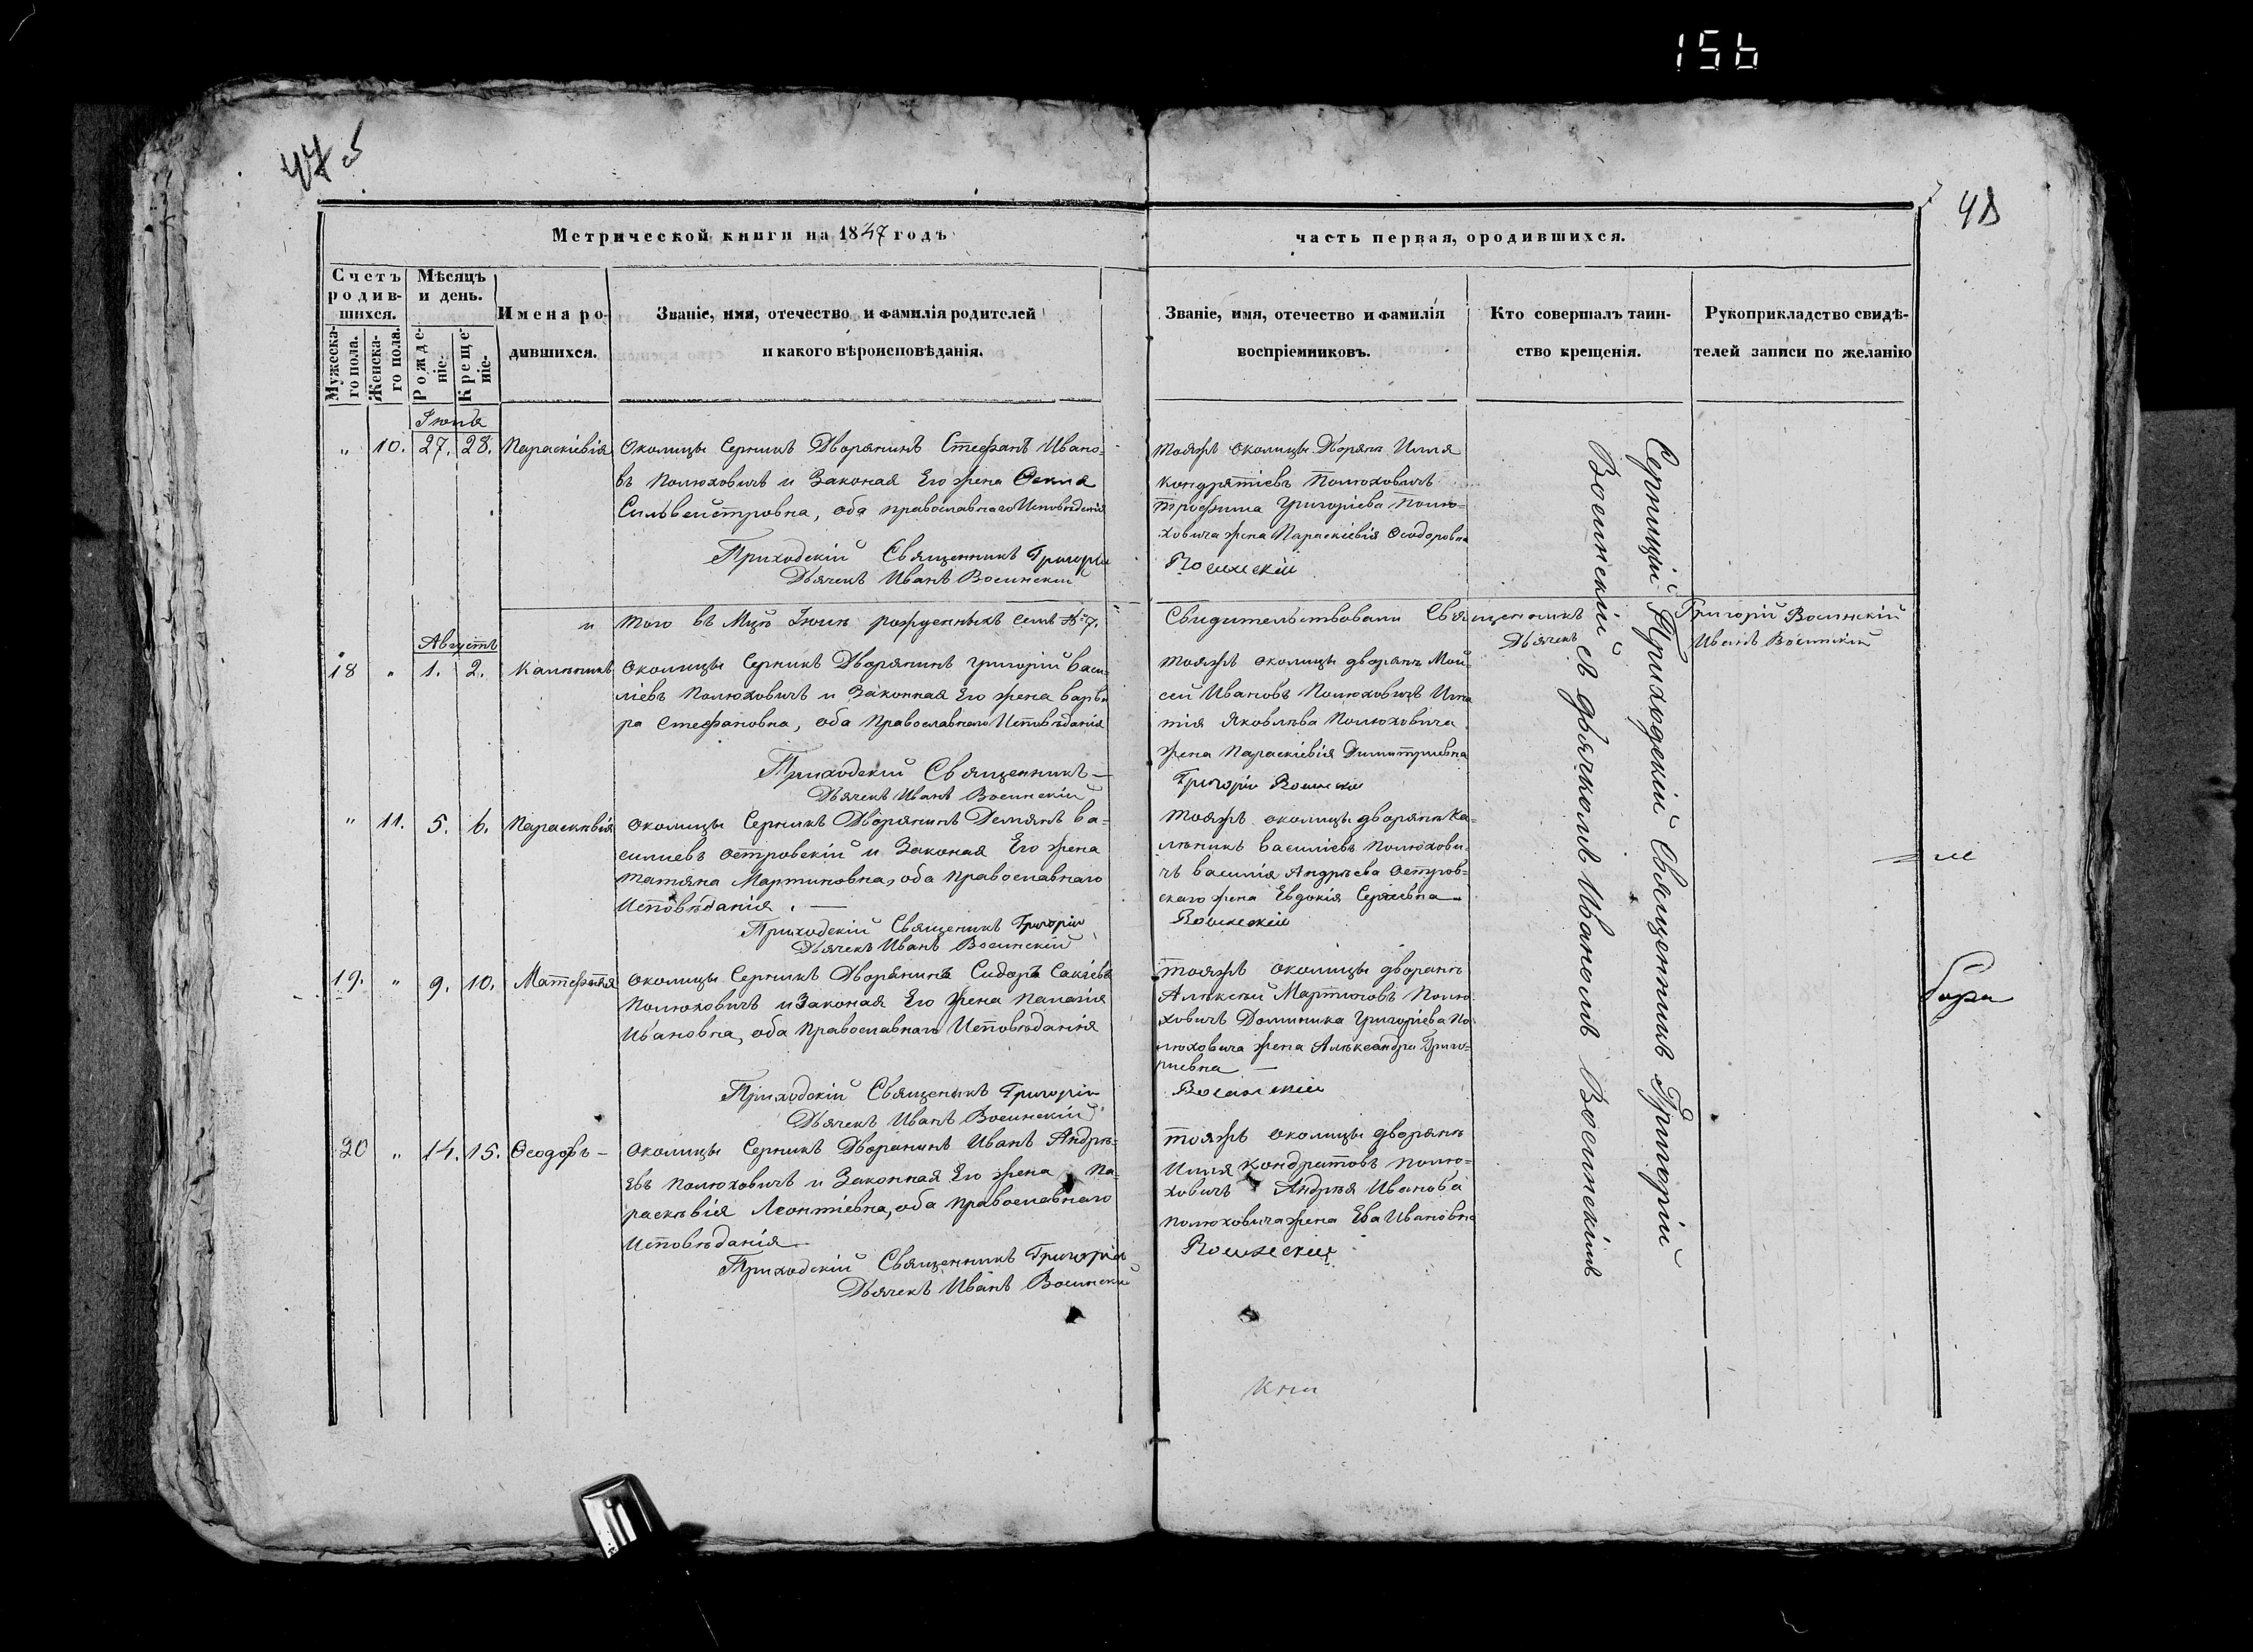 156
47
48
Метрической книги на 1847 годъ
часть первая, о родившихся.
Счетъ родив-шихся.
Мужеска-го пола.
Женска-го пола.
Мѣсяцъ и день.
Рожде-ніе.
Креще-ніе.
Имена ро-дившихся.
Званіе, имя, отечество и фамилія родителей
и какого вѣроисповѣданія.
Званіе, имя, отечество и фамилія
воспріемниковъ.
Кто совершалъ таин-
ство крещенія.
Рукоприкладство свидѣ-
телей записи по желанію
„ 10. 27. 28. Параскіевія
Околицы Серникъ Дворянинъ Стефанъ Ивано-
въ Полюховичъ и Законая Его жена
Сильвестровна, оба православнаго Исповѣданія
Приходскій Священникъ Григорій
Дьячекъ Иванъ Воеинскій
тояжъ околицы Дворян Илля
Кондратіевъ Полюховичъ
Трофима Григоріева Полю-
ховича жена Параскіевія Ѳеодоровна
Воеинскій
и того въ Мцѣ Іюлѣ рожденныхъ семь № 7.
Свидительствовали Священникъ Григорій Воеинскій
Дьячекъ Иванъ Воеинскій
Августъ
18 „ 1. 2. Калѣникъ
Околицы Серникъ Дворянинъ Григорій Васи-
ліевъ Полюховичъ и Законная Его жена Варва
ра Стефановна, оба Православнаго Исповѣданія
Приходскій Священникъ —
Дьячекъ Иванъ Воеинскій
тояжъ околицы дворянъ Мои-
сей Ивановъ Полюховичъ Игна
тія Яковлѣва Полюховича
жена Параскіевія Димитріевна
Григорій Воеинскій
„ 11. 5. 6. Параскѣвія
Околицы Серникъ Дворянинъ Демянъ Ва-
силиевъ Островскій и Законая Его жена
Татяна Мартиновна, оба Православнаго
Исповѣданія. —
Приходскій Священикъ Григорій
Дьячекъ Иванъ Воеинскій
тояжъ околицы дворянъ Ка-
лѣникъ Василіевъ Полюхови-
чъ Василія Андрѣева Островъ-
скаго жена Евдокія Сергіевна
Воеинскій
19. „ 9. 10.
Околицы Серникъ Дворянинъ Сидоръ Савіевъ
Полюховичъ и Законая Его жена Палагія
Ивановна, оба Православнаго Исповѣданія
Приходскій Священикъ Григорій
Дьячекъ Иванъ Воеинскій
тояжъ околицы дворянъ
Алѣксѣй Мартиновъ Полю
ховичъ Доминика Григоріева По
люховича жена Алѣксандра Григо-
риевна —
Воеинскій
20 „ 14. 15. Ѳеодоръ —
Околицы Серникъ Дворанинъ Иванъ Андрѣ-
евъ Полюховичъ и Законная Его жена Па-
раскѣвія Леонтіевна, оба Православнаго
Исповѣданія
Приходскій Священникъ Григорій
Дьячекъ Иванъ Воеинскій
тояжъ околицы дворянъ
Илля Кондратовъ Полю-
ховичъ Андрѣя Иванова
Полюховича жена Ева Ивановна
Воеинскій
Серницкій Приходскій Священникъ Григорій
Воеинскій съ дьячкомъ Иваномъ Воеинскимъ